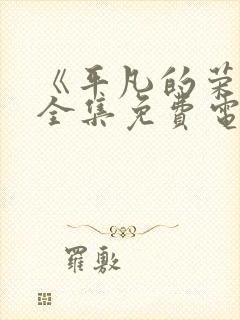 《平凡的荣
全集免費電
羅敷